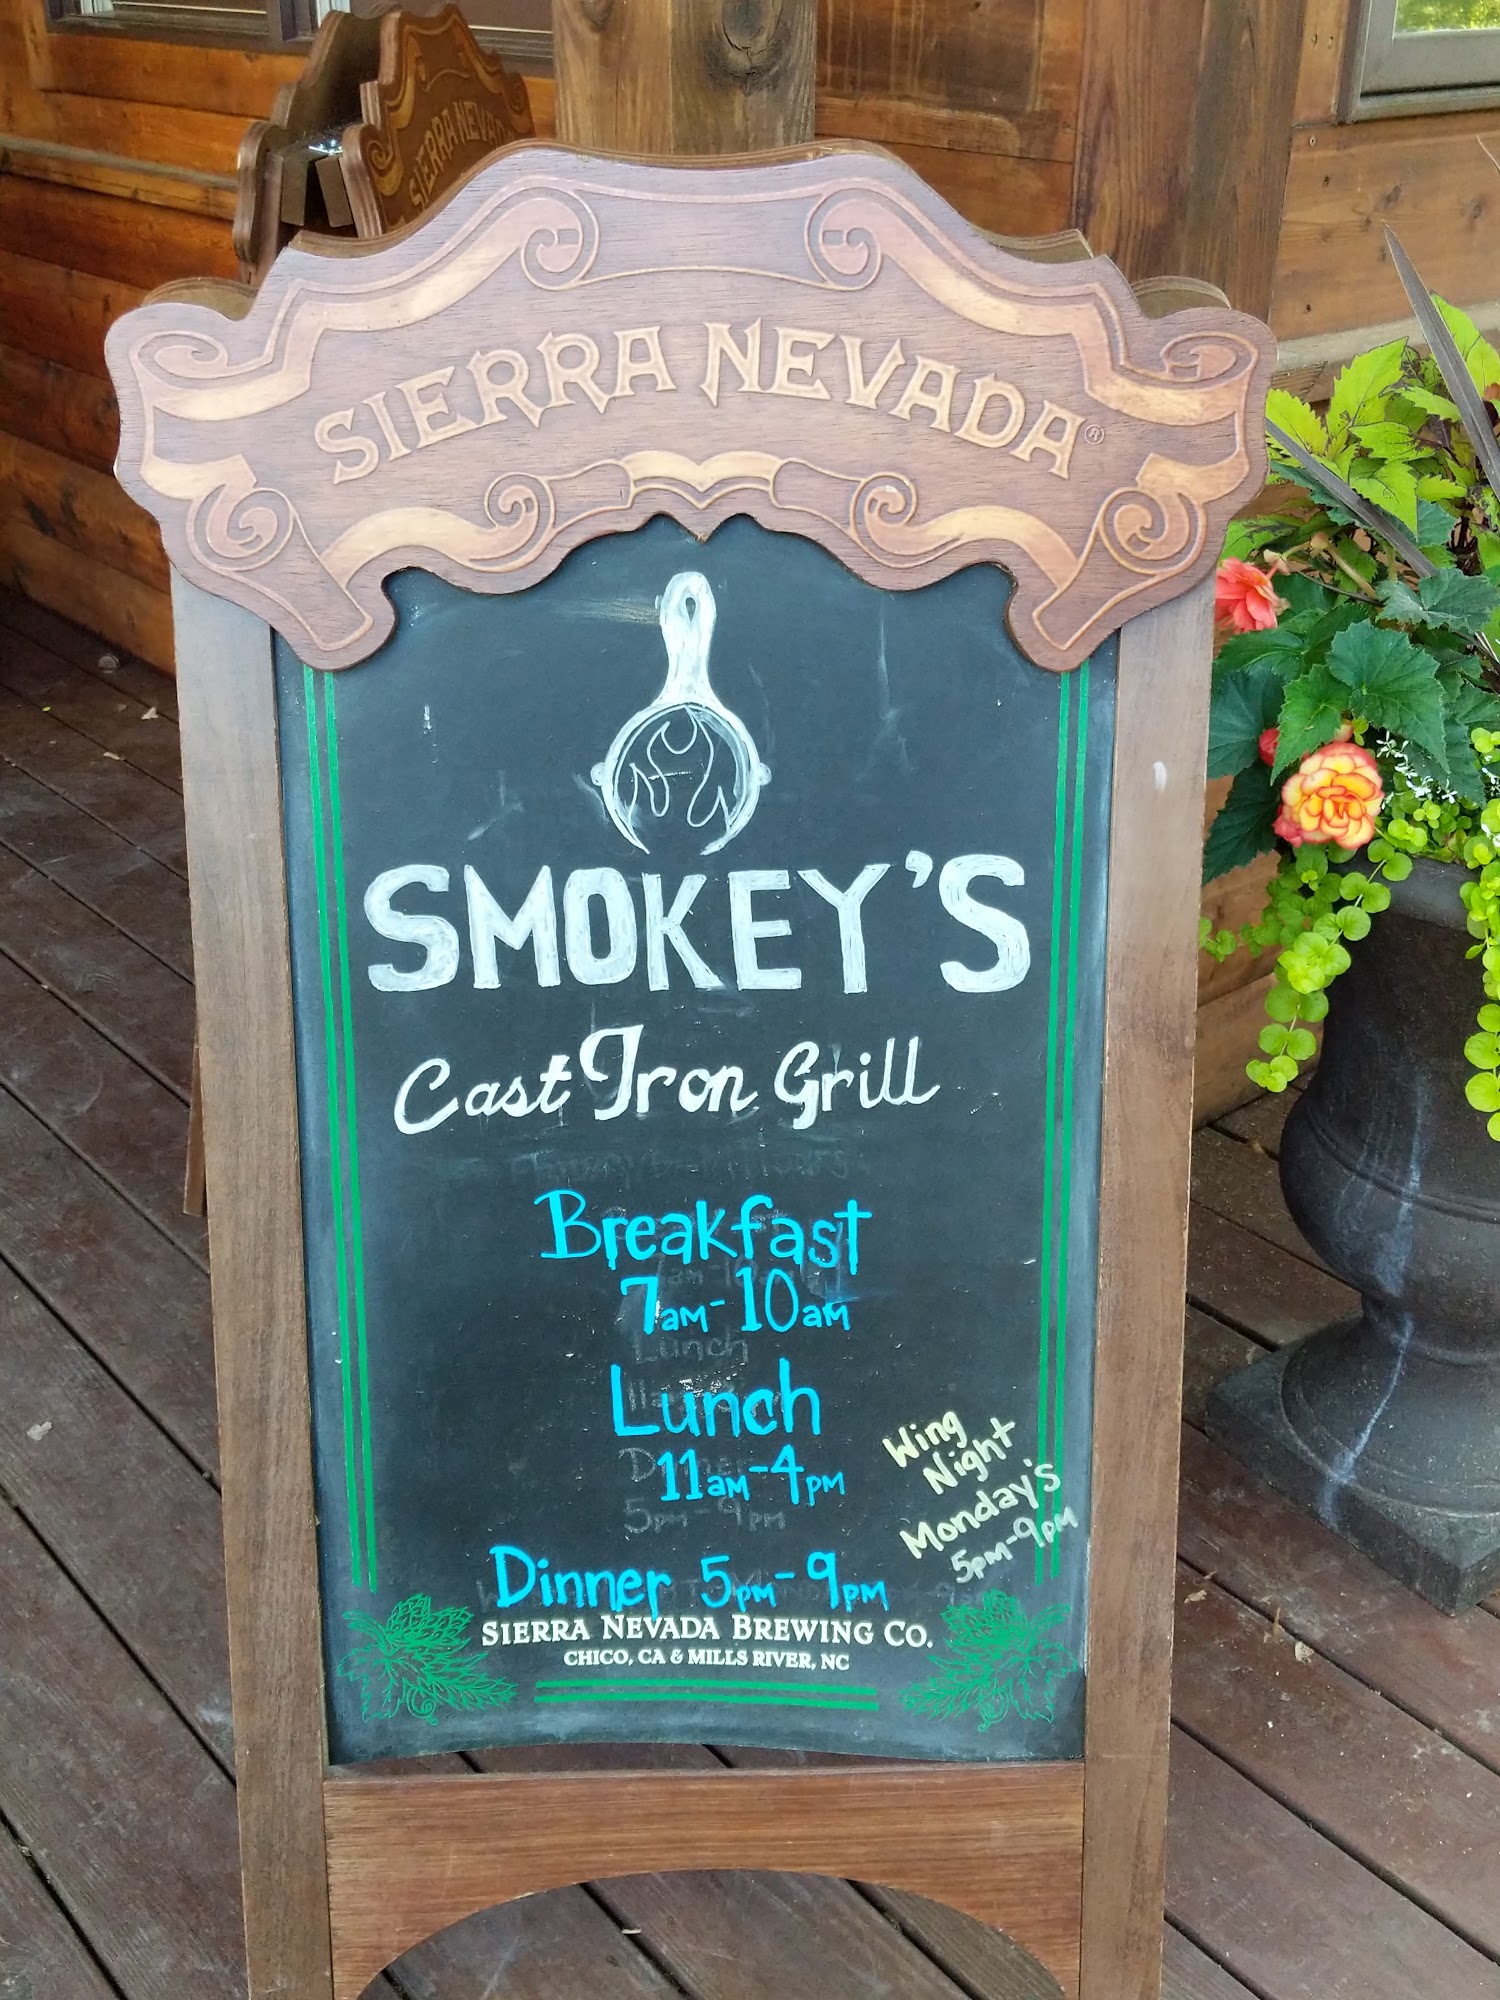 SIERRA NEVADA
SIERRA NEVADA®
SMOKEY'S
Cast Iron Grill
Breakfast
7am-10am
Lunch
11am-4pm
Dinner 5pm-9pm
Wing
Night
Monday's
5pm-9pm
SIERRA NEVADA BREWING CO.
CHICO, CA & MILLS RIVER, NC